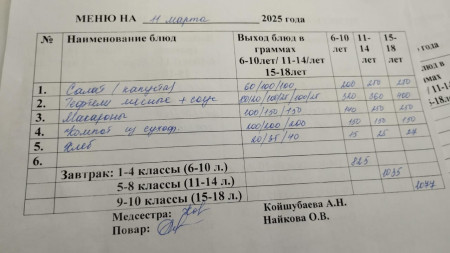 МЕНЮ НА 11 марта 2025 года
№ Наименование блюд Выход блюд в граммах 6-10лет/ 11-14/лет 15-18лет 6-10 лет 11-14 лет 15-18 лет
1. Салат (капуста) 60/100/100 200 250 250
2. Тефтели мясные + соус 320 360 400
3. Макароны 100/150/150 250 250
4. Компот из сухоф. 100/200/200 150 150 150
5. Хлеб 20/35/40 15 25 28
6.
Завтрак: 1-4 классы (6-10 л.) 825
5-8 классы (11-14 л.) 1035
9-10 классы (15-18 л.) 1077
Медсестра:
Койшубаева А.Н.
Повар:
Найкова О.В.
года
блюд в
граммах
11-14/